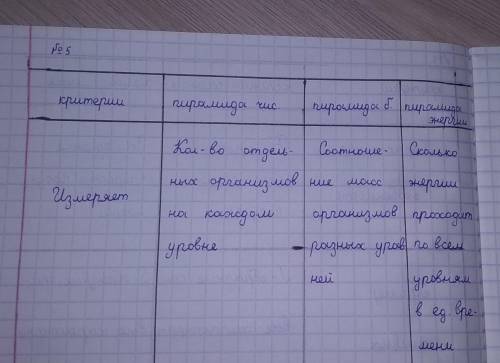 №5
критерии пирамида чис. пирамида б. пирамида энергии
Измеряет
Кол-во отдель-
ных организмов
на каждом
уровне
Соотноше-
ние масс
организмов
разных уров
ней
Сколько
энергии
проходит
по всем
уровням
в ед. вре-
мени